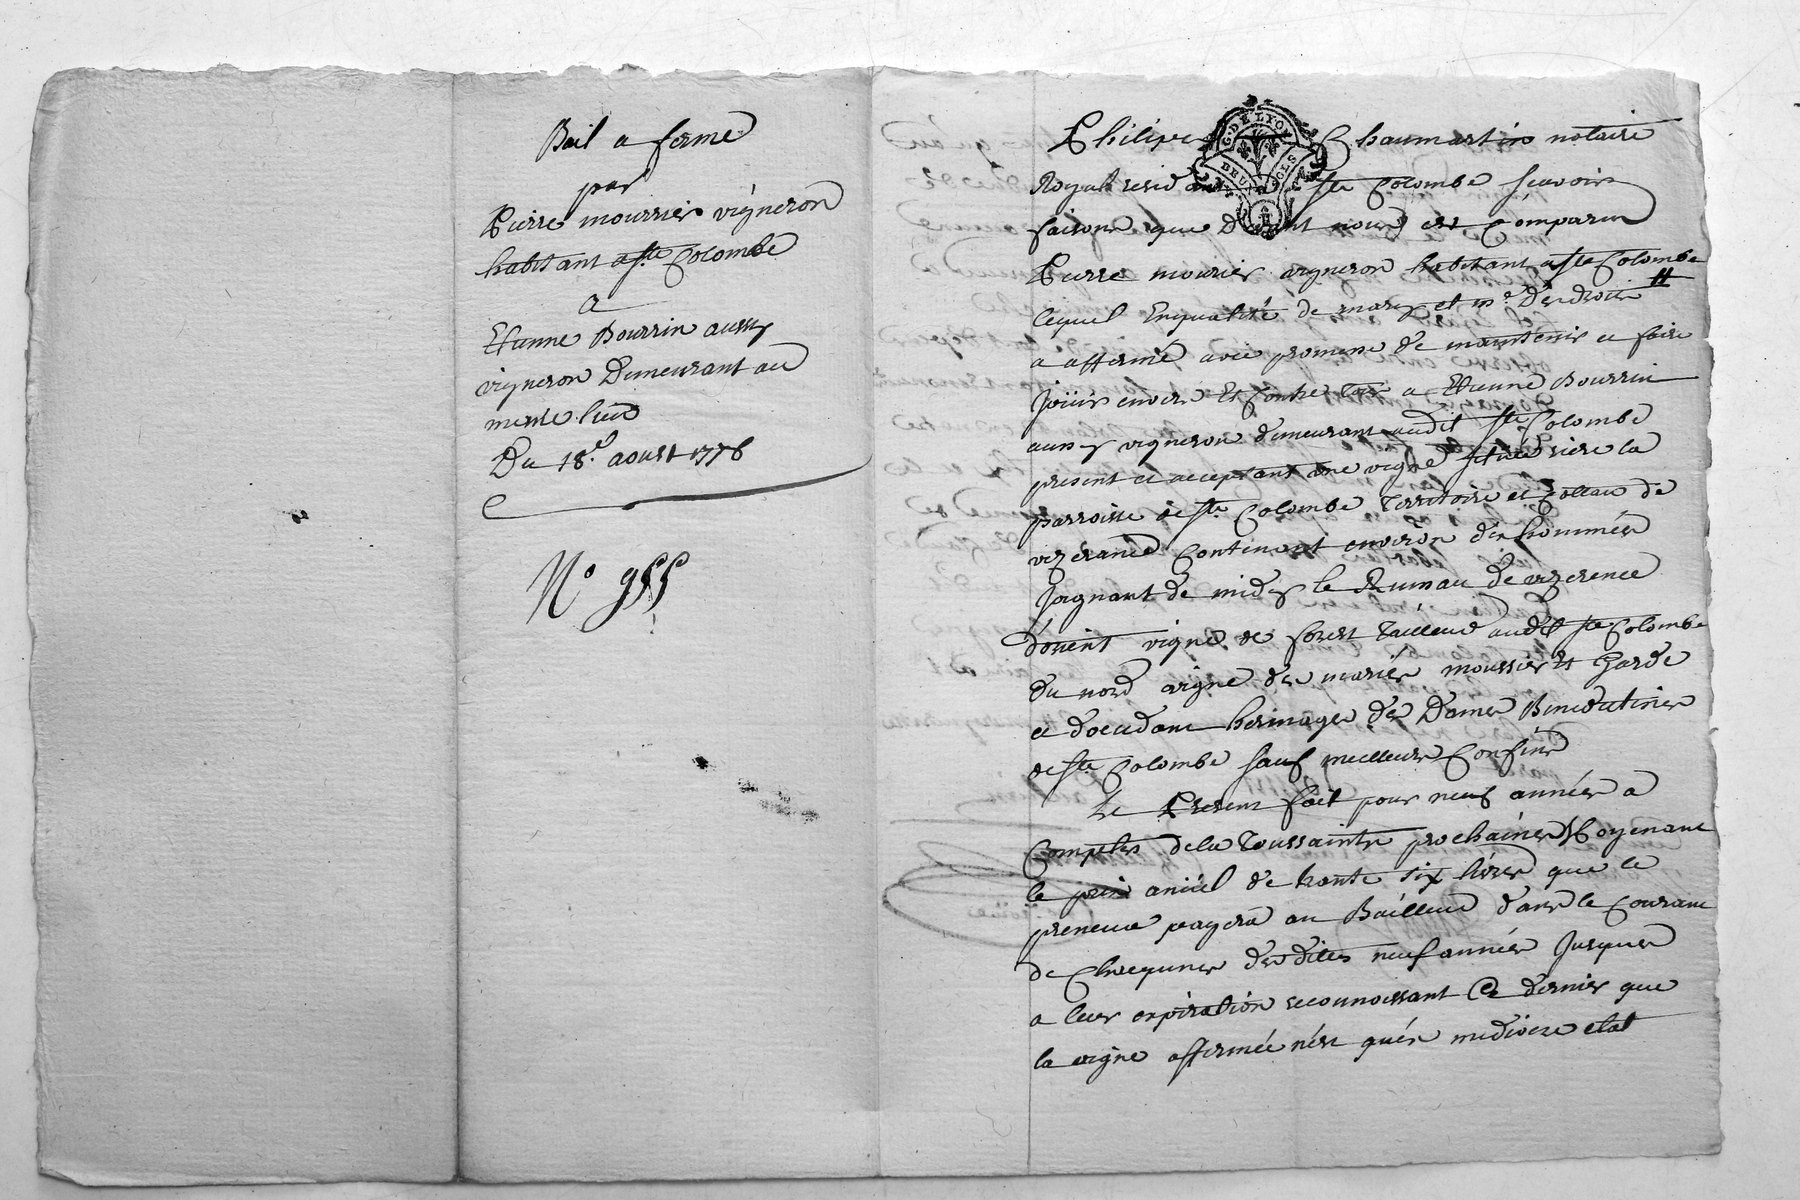 Bail a ferme
par
Pierre mourrier vigneron
habitant a Ste Colombe
a
Etienne Bourrin aussy
vigneron Demeurant au
meme lieu
Du 18e. aoust 1776
N° 955
G. DE LYON
DEUX SOLS
Philipe Chaumartin notaire
Royal resid Ste Colombe scavoir
faisons que Devant nous est Comparu
Pierre mourier vigneron habitant a Ste Colombe
lequel Enqualité de mary et me. Des droits #
a affermé avec promesse de maintenir et faire
joüir envers Et Contre tous a Etienne Bourrin
aussy vigneron demeurant audit Ste Colombe
present et acceptant une vigne situeé riere la
parroisse de Ste Colombe Territoire et Cotteau de
vezerance Contenant environ dix hommeés
joignant de midy le Ruisseau de vezerence
d'orient vigne de forest Tailleur audit Ste Colombe
du nord vigne des mariés moussier Et Garde
et d'occident heritages des Dames Benedictines
de Ste Colombe sauf meilleurs Confins
Le Present fait pour neuf années a
Compter de la Toussaints prochaines Moyenant
le prix anüel de trante six livres que le
preneur payera au Bailleur dans le Courant
de Chaqunes des dites neuf années Jusques
a leur expiration reconnoissant Ce dernier que
la vigne affermeé n'est qu'en mediocre etat